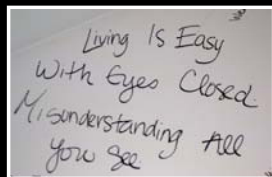 Living Is Easy
With Eyes Closed.
Misunderstanding All
You See